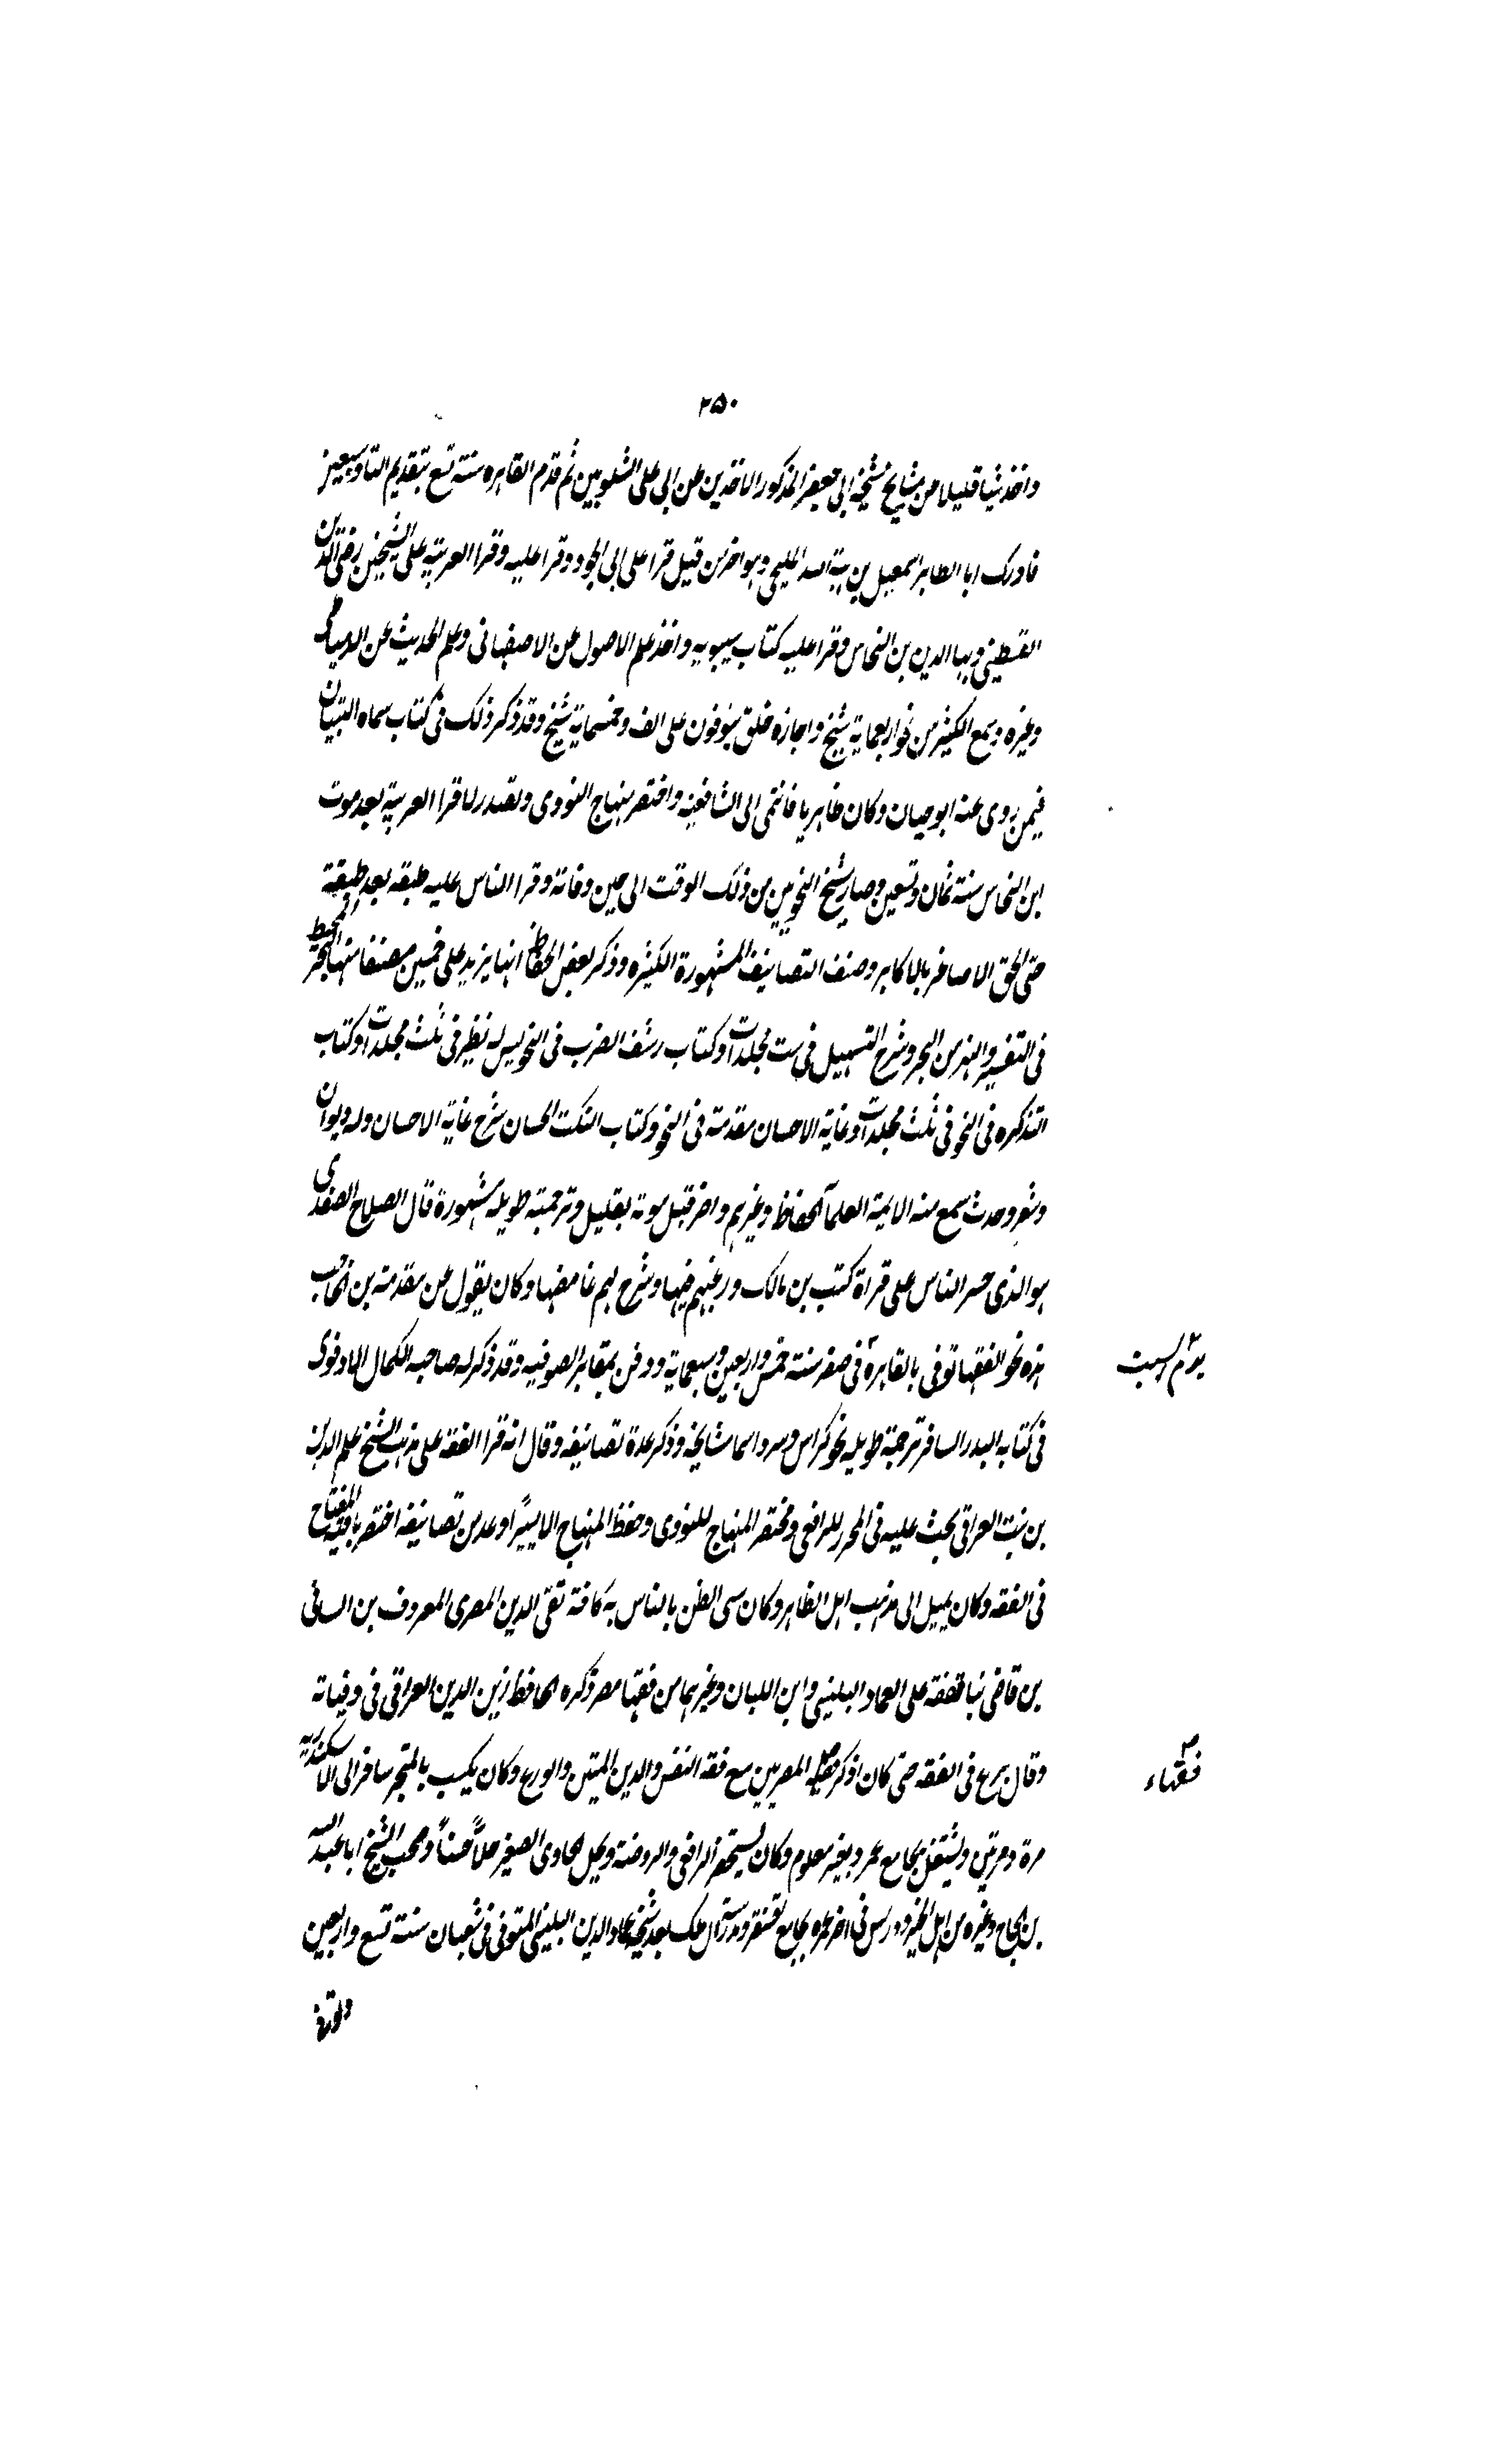 ٢٥٠
واخذ شيا قليلا من مشايخ شيخه ابى جعفر المذكور الاخذين عن ابى على الشلوبين ثم قدم القاهره سنة تسع بتقديم التا وسبعين
فادرك ابا الطاهر اسمعيل بن هبة الله المليجى وهو اخر من قيل قرا على ابى الجود وقرا عليه وقرا العربية على الشيخين رضى الدين
القسطينى وبها الدين بن النحاس وقرا عليه كتاب سيبويه واخذ علم الاصول عن الاصفهانى وعلم الحديث عن الدمياطى
وغيره وسمع الكثير من نحو اربعماية شيخ واجازه خلق ينوفون على الف وخمسماية شيخ وقد ذكر ذلك فى كتاب سماه التبيان
فيمن روى عنه ابو حيان وكان ظاهريا فانتمى الى الشافعيه واختصر منهاج النووى وتصدر لاقرا العربية بعد موت
ابن النحاس سنة ثمان وتسعين وصار شيخ النحويين من ذلك الوقت الى حين وفاته وقرا الناس عليه طبقه بعد طبقة
حتى الحق الاصاغر بالاكابر وصنف التصانيف المشهورة الكثيره وذكر بعض الحفاظ انها يزيد على خمسين مصنفا منها البحر المحيط
فى التفسير والنهر من البحر وشرح التسهيل فى ست مجلدات وكتاب رشف الضرب فى النحو ليس له نظير فى ثلث مجلدات وكتاب
التذكره فى النحو فى ثلث مجلدات وغاية الاحسان مقدمة فى النحو وكتاب النكت الحسان شرح غاية الاحسان وله ديوان
وشعر وحدث سمع منه الايمة العلمآ الحفاظ وغيرهم واضر قبل موته بقليل وترجمته طويله مشهورة قال الصلاح الصفدى
هو الذى جسر الناس على قراة كتب بن مالك ورغبهم فيها وشرح لهم غامضها وكان يقول عن مقدمة بن الحاجب
هذه نحو الفقها توفى بالقاهرة فى صفر سنة خمس واربعين وسبعماية ودفن بمقابر الصوفيه وقد ذكر له صاحبه الكمال الادفوى
يوم السبت
فى كتابه البدر السافر ترجمة طويله نحو كراس وسرد اسما مشايخه وذكر عدة تصانيفه وقال انه قرا الفقه على مذهب الشيخ علم الدين
بن بنت العراقى بحث عليه فى المحرر للرافعى ومختصر المنهاج للنووى وحفظ المنهاج الا يسيرًا وعد من تصانيفه اختصر المنهاج
فى الفقه وكان يميل الى مذهب اهل الظاهر وكان سى الظن بالناس به كافة تقى الدين المصرى المعروف بن
بن قاضى تفقه على العماد البلبيسى وابن اللبان وغيرهما من فقها مصر ذكره الحافظ زين الدين العراقى فى وفياته
وقال برع فى الفقه حتى كان اذكر المصريين مع فقه النفس والدين المتين والورع وكان يكسب بالمتجر سافر الى الاسكندريه
فقهاء
مرة ومرتين ويشتغل بجامع عمرو بغير معلوم وكان يستحضر الرافعى والروضة ويحل الحاوى الصغير حلاً حسناً وصحب الشيخ ابا عبد الله
بن الحاج وغيره من اهل الخير ودرس فى اخر عمره بجامع ومدرسة ال ملك بعد شيخه عماد الدين البلبيسى المتوفى فى شعبان سنة تسع واربعين